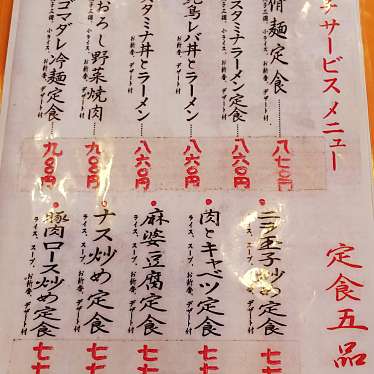 サービスメニュー
麺定食
八七〇円
スタミナラーメン定食
お新香、デザート付
八六〇円
レバ丼とラーメン
お新香、デザート付
八六〇円
スタミナ丼とラーメン
お新香、デザート付
八六〇円
おろし野菜焼肉
小ライス、お新香、デザート付
九〇〇円
ゴマダレ冷麺定食
小ライス、お新香、デザート付
九〇〇円
定食五品
ニラ玉子炒め定食
ライス、スープ、お新香、デザート付
七
肉とキャベツ定食
ライス、スープ、お新香、デザート付
七七
麻婆豆腐定食
ライス、スープ、お新香、デザート付
七七
ナス炒め定食
ライス、スープ、お新香、デザート付
七七
豚肉ロース炒め定食
ライス、スープ、お新香、デザート付
七七